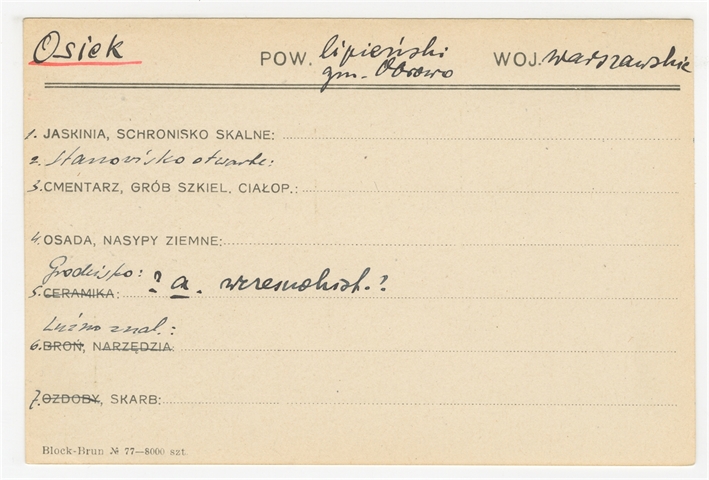 Osiek POW. lipieński WOJ. warszawskie
gm. Obrowo
1. JASKINIA, SCHRONISKO SKALNE:
2. Stanowisko otwarte:
3. CMENTARZ, GRÓB SZKIEL, CIAŁOP.:
4. OSADA, NASYPY ZIEMNE:
Grodzisko: ? a. wczesnohist.?
5. CERAMIKA:
Luźno znal.:
6. BROŃ, NARZĘDZIA:
7. OZDOBY, SKARB:
Block-Brun № 77—8000 szt.